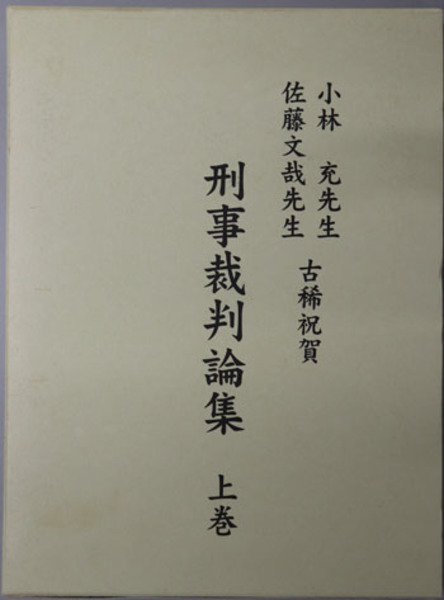 小林　充先生
佐藤文哉先生
古稀祝賀
刑事裁判論集　上巻